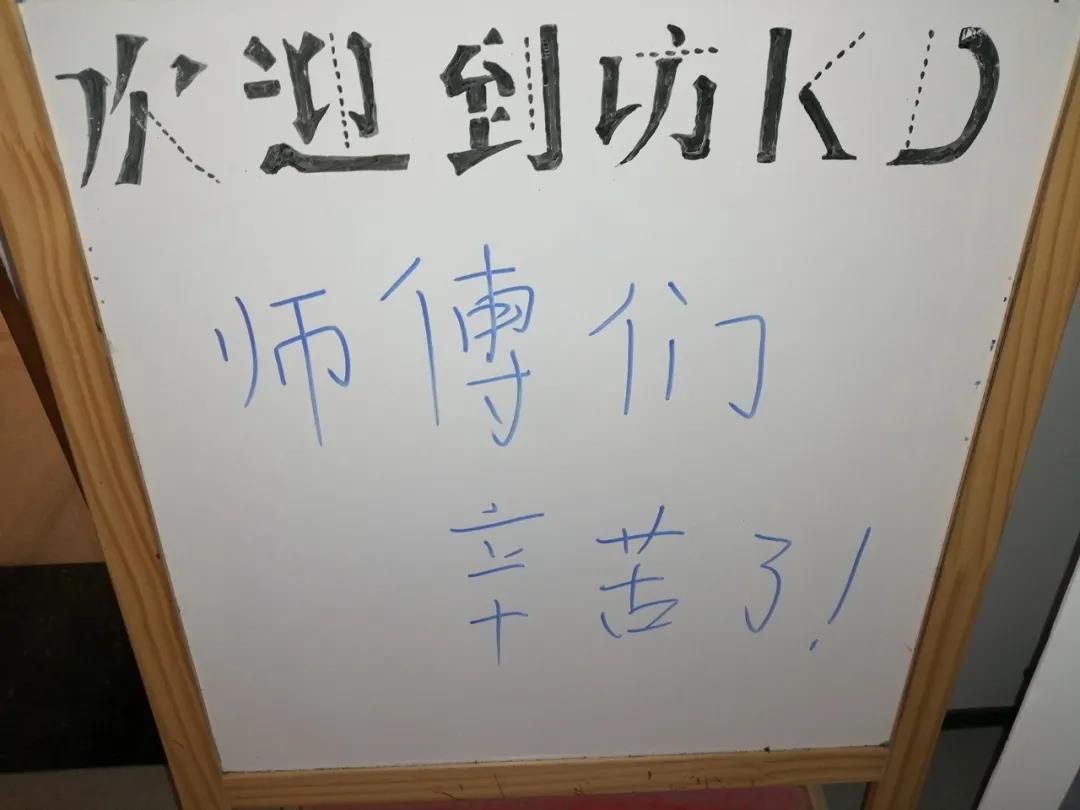 欢迎到访KD
师傅们
辛苦了!